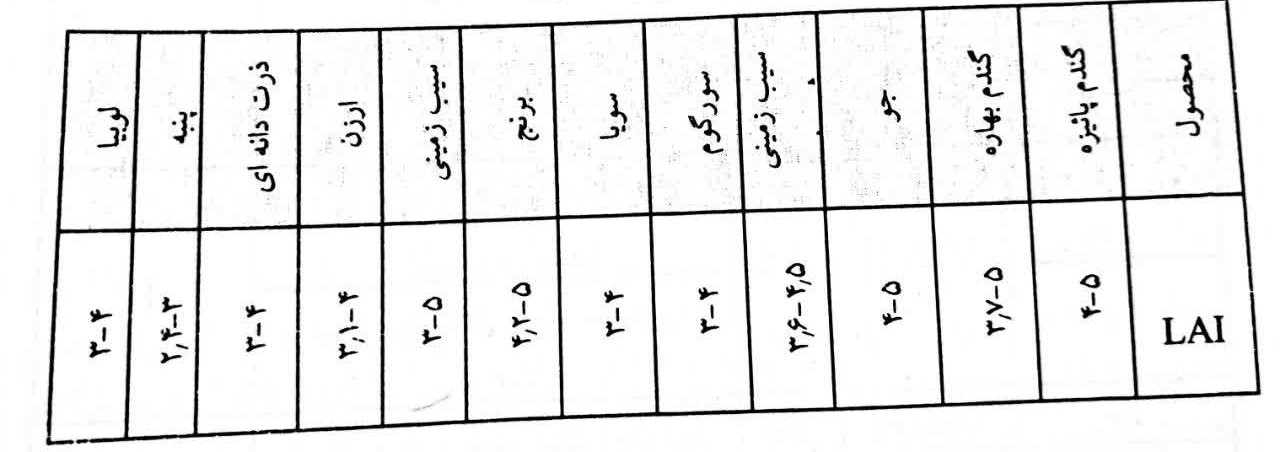 محصول گندم پائیزه گندم بهاره جو سیب زمینی سورگوم سویا برنج سیب زمینی ارزن ذرت دانه ای پنبه لوبیا
LAI ۴-۵ ۳٫۷-۵ ۴-۵ ۳٫۶-۴٫۵ ۳-۴ ۳-۴ ۴٫۲-۵ ۳-۵ ۳٫۱-۴ ۳-۴ ۲٫۴-۳ ۳-۴